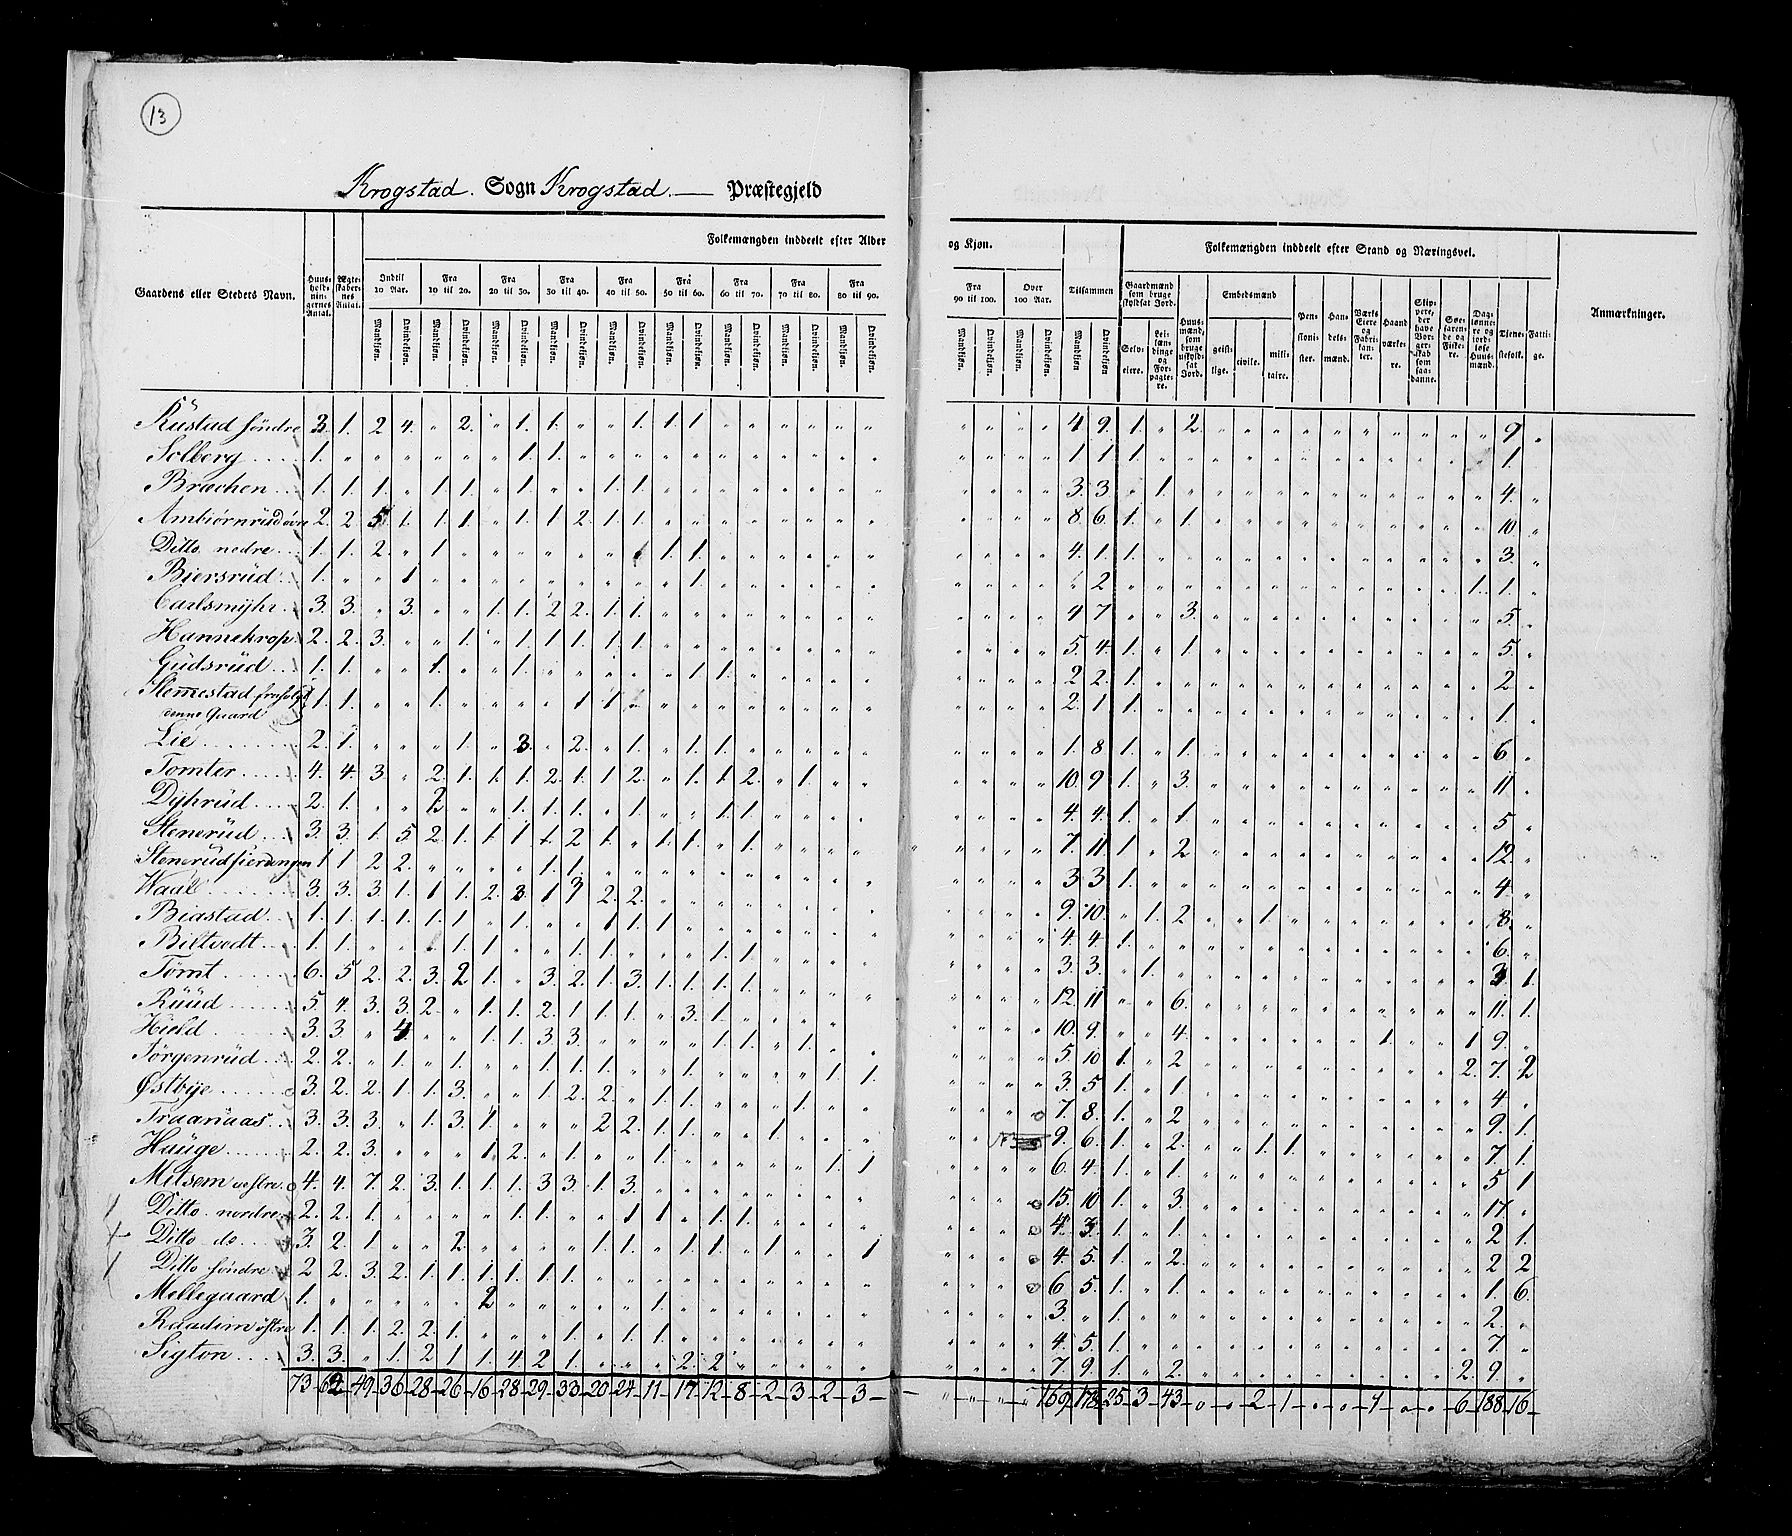 13
Krogstad. Sogn Krogstad. Præstegjeld
Gaardens eller Stedets Navn.
Huusholdningernes Antal.
Ægteskabernes Antal.
Folkemængden inddeelt efter Alder og Kjøn.
Indtil 10 Aar. Fra 10 til 20. Fra 20 til 30. Fra 30 til 40. Fra 40 til 50. Fra 50 til 60. Fra 60 til 70. Fra 70 til 80. Fra 80 til 90. Fra 90 til 100. Over 100 Aar. Tilsammen
Mandkjøn. Qvindekjøn.
Folkemængden inddeelt efter Stand og Næringsvei.
Gaardmænd som bruge skyldsat Jord.
Selveiere. Leilændinge og Forpagtere.
Huusmænd, som bruge uskyldsat Jord.
Embedsmænd
geistlige. civile. militaire.
Pensionister.
Handelsmænd.
Værks Eiere og Fabrikanter.
Haandværkere.
Skippere, der have Borgerskab som saadanne.
Søefarende og Fiskere.
Daglønnere og jordløse Huusmænd.
Tjenestefolk.
Fattige.
Anmærkninger.
Rustad søndre 3. 1. 2 4. " 2. " 1. 1. " " 1. 1. 1 4 9. 1. " 2. 9
Solberg 1. 1 1. 1 1 1 1.
Brachen 1. 1. 1. " 1. 1. " 1. " " 1. 1. 3. 3 " 1. 4.
Ambiørnrud øvre 2. 2 5 1. 1. 1. " 1. 1 2 1. 1. 8 6. 1. " 1. 10
Ditto nedre 1. 1. 2. " 1 1. 1. 4. 1. 1. 3.
Biersrud 1. " " 1 1. " 2 1. 1.
Carlsmyhr 3. 3. " 3. " " 1. 1. 2 2. 1. 1. 4 7. " " 3. 5.
Hannekrop 2. 2. 3. " " 1. " 1. 1. 1 1. 1. 5. 4. 1. " 1. 5.
Gudsrud 1. 1. " " 1. " " 1. 1. 1. 2 2. 1. 2
Stemmestad
denne Gaard 1. 1. " " 1. 1 1. 2. 1 1. 1.
Lie 2. 1. " " " 1. " 3. " 2. " 1. " 1. 1. 1. 8 1. " 1. 6
Tomter 4. 4. 3. " 2. 1. 1. 1. 2. 1. 1 2. " 1. 1. 2. " 1. 10. 9 1. " 3. 11
Dyhrud 2. 1. " " 2 " " 1. 1. 1. " 1. " " 1. 1 4. 4. 1. " 1 5
Stenerud 3. 3. 1. 5 2 1. 1 1 1 2 1. " 1. 1. " 1. 7. 11. 1. " 2 12.
Stenerudfierdingen 1 1 2 2. 1. 1. 3 3 1. 4
Waul 3. 3. 3 1. 1 1. 2. 3. 1 3 2. 2. 9. 10. " 1. 2. " " 1. 8.
Biastad 1. 1. 1. 1. 1. 1. " 1. " " 1. 1. 1. 4. 4. 1. 6.
Biltvedt 1. 1. " " " 1. 1. " 1. 1. 1. 1. 3. 3. " 1. 3 1.
Tømt 6. 5 2. 2. 3. 2 1. " 3. 2. 1. 3. 1. 1. 1. 1. 12. 11 " " 6. 11. 1.
Ruud 5. 4. 3. 3. 2. " 1. 1. 2. 1. 1. 1. " 3. 1. 10. 9. " " 4. 1. 1 9.
Hield 3. 3. " 4. " " 1. 1. 3 3. 1. 1. " 1. 5. 10 1. " 2 2. 7. 2
Jørgenrud 2. 2. " 1. " 1. " " 1. 1. 1. " " 1. 1. 1. 3. 5. 1. " 1. 4
Østbye 3. 2. 2. 1. 1. 3. " " 1. 2. 2. " 1. 1. " " " 1. 7. 8. 1. " 2 9. 1.
Fraanaas 3. 3. 3. " 1. 3. 1. " " " 2 2. 1. 1. " " 1. 9. 6. 1. " 2. " " 1. 1. 7. 1.
Hauge 2. 2. 3. " " " 1. 2. " 1. " " 1. 1. 1 6. 4. 1. " 1. 5 1
Mitsem vestre 4. 4. 7. 2. 3. 1. 1. 1. 3 3. 1. 3. 15. 10. 1. " 3. 17.
Ditto nordre 2. 2. 1. 1. 1. " " 1 1. " 1. 1. 4. 3. 1. " 1. 2 1.
Ditto do 3. 2. 1. " " 2. 1. 1. " 1. 1. " 1. " " 1 4. 5. 1. " 2. 2 2
Ditto søndre 2 2. 3. 2. 1. 1. 1. 1. 1. 1. 6. 5. 1. " 1. 1. 6.
Mellegaard 1. 2 1. 3. " 1. 2.
Raadim østre 1. 1. 1. 2. 2. 1. " " " 1. " 1. 1. 4. 5. 1. 7.
Sigton 3. 3. " 1. 2 1. 1. 4. 2 1. " " " 2. 2 7. 9. 1. " 2. 2. 9.
73 - 62 - 49 - 36 - 28 - 26 - 16 - 28 - 29 - 33 - 20 - 24 - 11 - 17 - 12 - 8 - 2 - 3 - 2 - 3 - 169 - 178 - 25 - 3 - 43 - 0 - 0 - 2 - 1 - 0 - 0 - 1 - 0 - 0 - 6 - 188 - 16 -